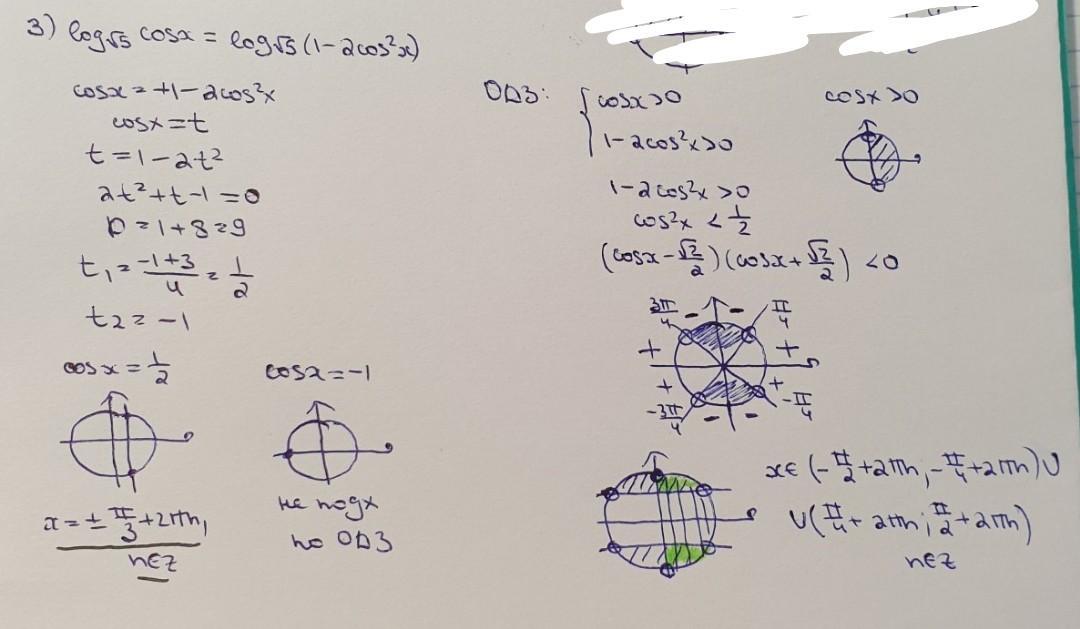 3) log√5 cosx = log√5 (1-2cos²x)
cosx = +1-2cos²x
cosx = t
t = 1-2t²
2t²+t-1=0
D = 1+8=9
t₁ = (-1+3)/4 = 1/2
t₂ = -1
cosx = 1/2
x = ± π/3 + 2πn,
n∈Z
cosx = -1
не подх
по ОДЗ
ОДЗ: { cosx>0
1-2cos²x>0
cosx>0
1-2cos²x>0
cos²x < 1/2
(cosx - √2/2)(cosx + √2/2) < 0
3π/4 - - π/4
+ +
+ +
-3π/4 - - -π/4
x∈ (-π/2+2πn; -π/4+2πn) ∪
∪(π/4+2πn; π/2+2πn)
n∈Z